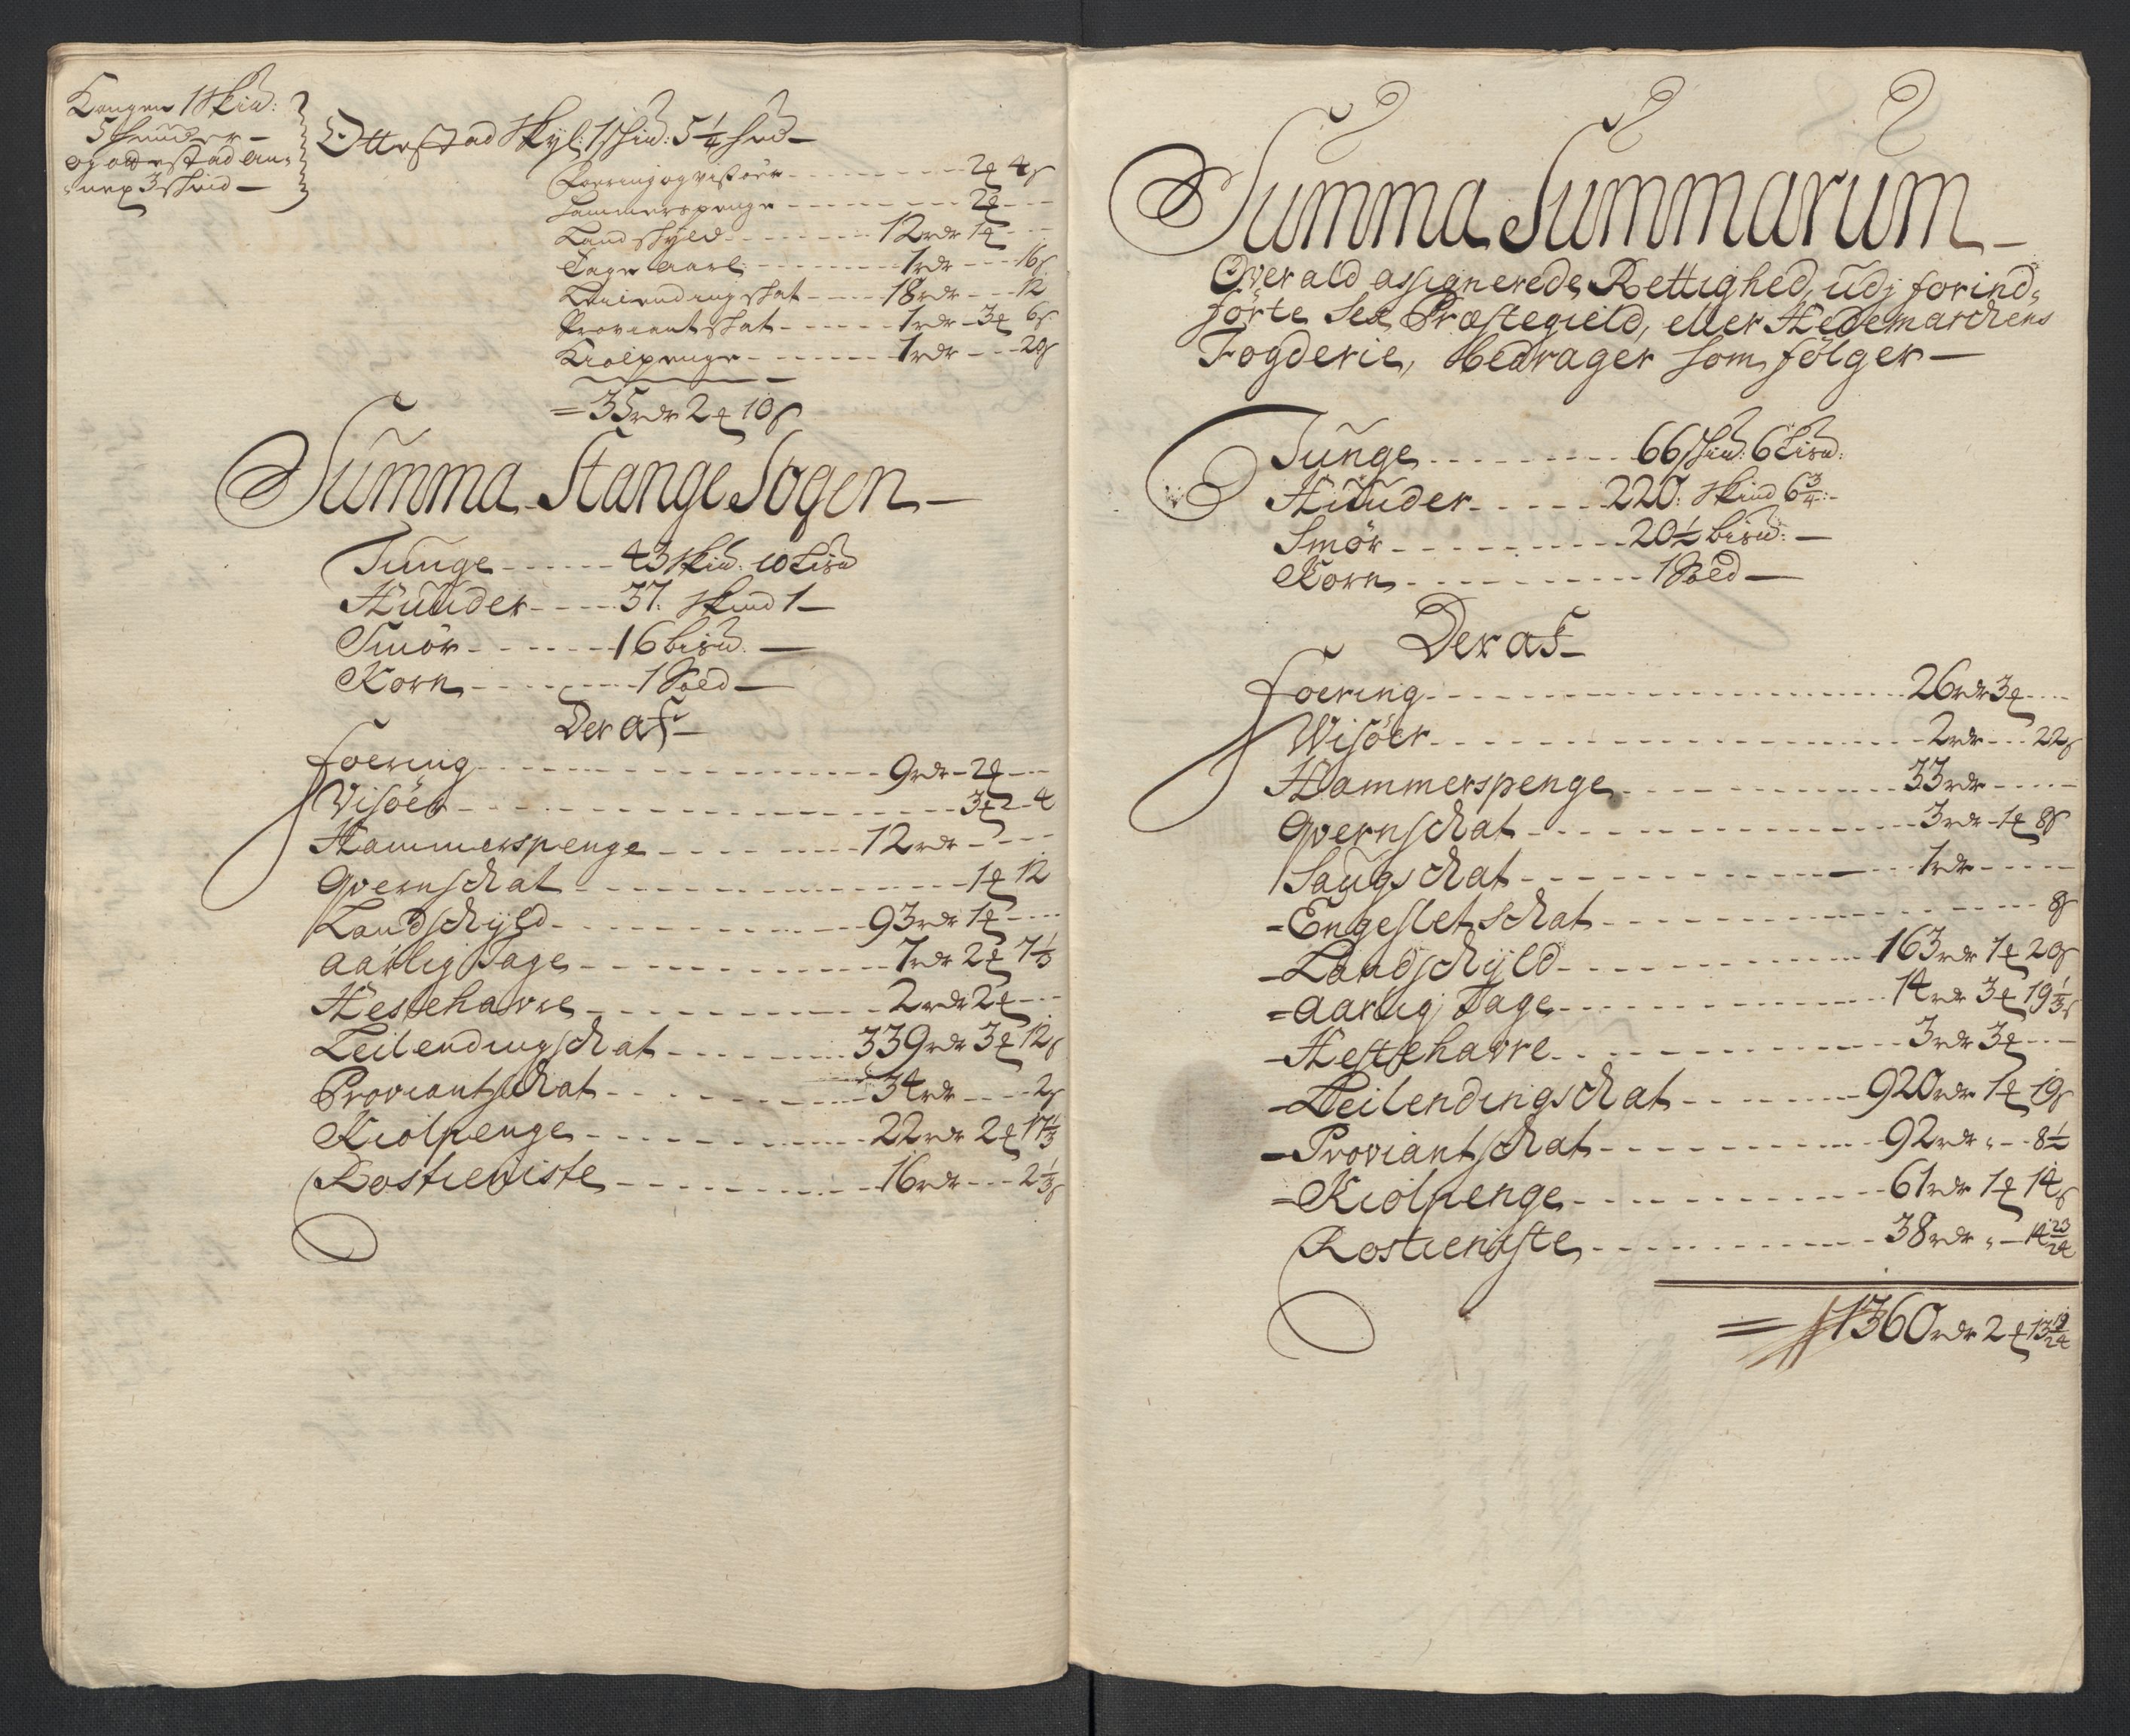 Kongen 1 Skin:
5 huuder –
og ottestad an-
nex 3 Skind –
Ottestad Skyl: 1 Skin: 5 1/4 hud –
Foering og visöer - - - 2 ꝑ 4 s
Hammerspenge - - - 2 ꝑ - -
Landskyld - - - 12 rdr 1 ꝑ - -
Tage aarl: - - - 1 rdr - - 16 s
Leilendingskat - - - 18 rdr - - 12
Proviantskat - - - 1 rdr - 3 ꝑ 6 s
Kiolpenge - - - 1 rdr - - 20 s
= 35 rdr 2 ꝑ 10 s
Summa Stange Sogen –
Tunge - - - 43 Skin: 10 Lisu
Huuder - - - 37: Skind 1 –
Smör - - - 16 bisu: –
Korn - - - 1 Sold –
Der af –
foering - - - 9 rdr - 2 ꝑ - -
Visöer - - - 3 ꝑ - 4
Hammerspenge - - - 12 rdr - - -
Qvernschat - - - 1 ꝑ 12
Landschyld - - - 93 rdr 1 ꝑ - -
aarlig Tage - - - 7 rdr 2 ꝑ 7 1/3
Hestehavre - - - 2 rdr 2 ꝑ - -
Leilendingschat - - - 339 rdr 3 ꝑ 12 s
Proviantschat - - - 34 rdr - - 2 s
Kiolpenge - - - 22 rdr 2 ꝑ 17 1/3
Rostieniste - - - 16 rdr - - 2 1/3 s
Summa Summarum –
Over ald assignerede Rettighed, udj forind-
förte Sex Præstegield, eller Hedemarchens
Fogderie, bedrager som fölger –
Tunge - - - 66 Skin: 6 Lisu:
Huuder - - - 220: Skind 6 3/4 :-
Smör - - - 20 1/2 bisu: –
Korn - - - 1 Sold –
Der af –
foering - - - 26 rdr 3 ꝑ - -
Wisöer - - - 2 rdr - - 22 s
Hammerspenge - - - 33 rdr - - -
Qvernschat - - - 3 rdr - 1 ꝑ 8 s
Saugschat - - - 1 rdr - - -
- Engesletschat - - - 8 s
- Landschyld - - - 163 rdr 1 ꝑ 20 s
= aarlig Tage - - - 14 rdr 3 ꝑ 19 1/3 s
- Hestehavre - - - 3 rdr 3 ꝑ - -
- Leilendingschat - - - 920 rdr 1 ꝑ 19 s
- Proviantschat - - - 92 rdr „ - 8 1/2
= Kiolpenge - - - 61 rdr 1 ꝑ 14 s
Rostieniste - - - 38 rdr „ - 14 23/24
= 1360 rdr 2 ꝑ 13 19/24